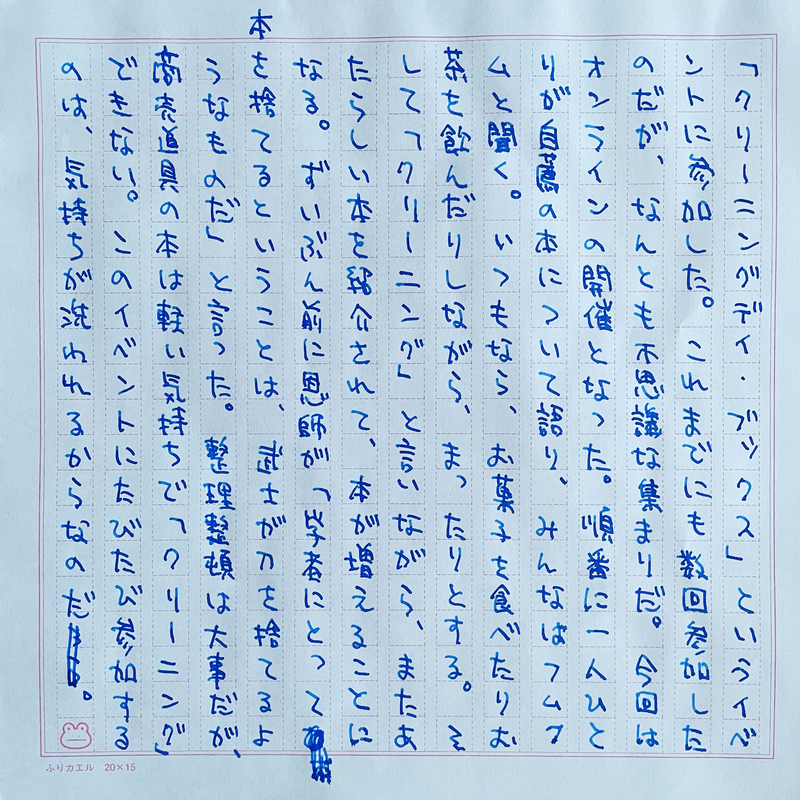 「クリーニングデイ・ブックス」というイベ
ントに参加した。これまでにも数回参加した
のだが、なんとも不思議な集まりだ。今回は
オンラインの開催となった。順番に一人ひと
りが自薦の本について語り、みんなはフムフ
ムと聞く。いつもなら、お菓子を食べたりお
茶を飲んだりしながら、まったりとする。そ
して「クリーニング」と言いながら、またあ
たらしい本を紹介されて、本が増えることに
なる。ずいぶん前に恩師が「学者にとって
本を捨てるということは、武士が刀を捨てるよ
うなものだ」と言った。整理整頓は大事だが、
商売道具の本は軽い気持ちで「クリーニング」
できない。このイベントにたびたび参加する
のは、気持ちが洗われるからなのだ。
ふりカエル 20×15